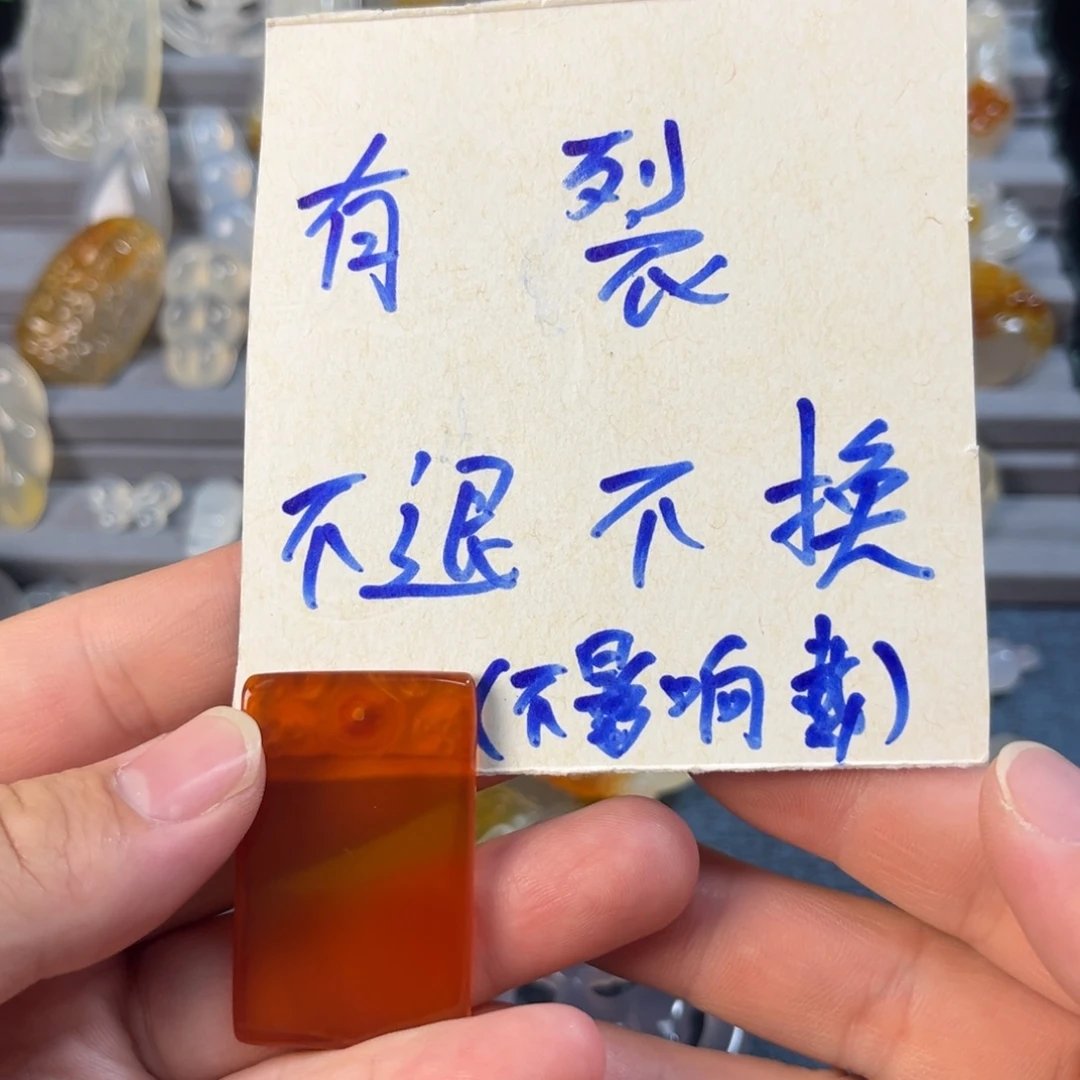 有 裂
不退不换
(不影响戴)